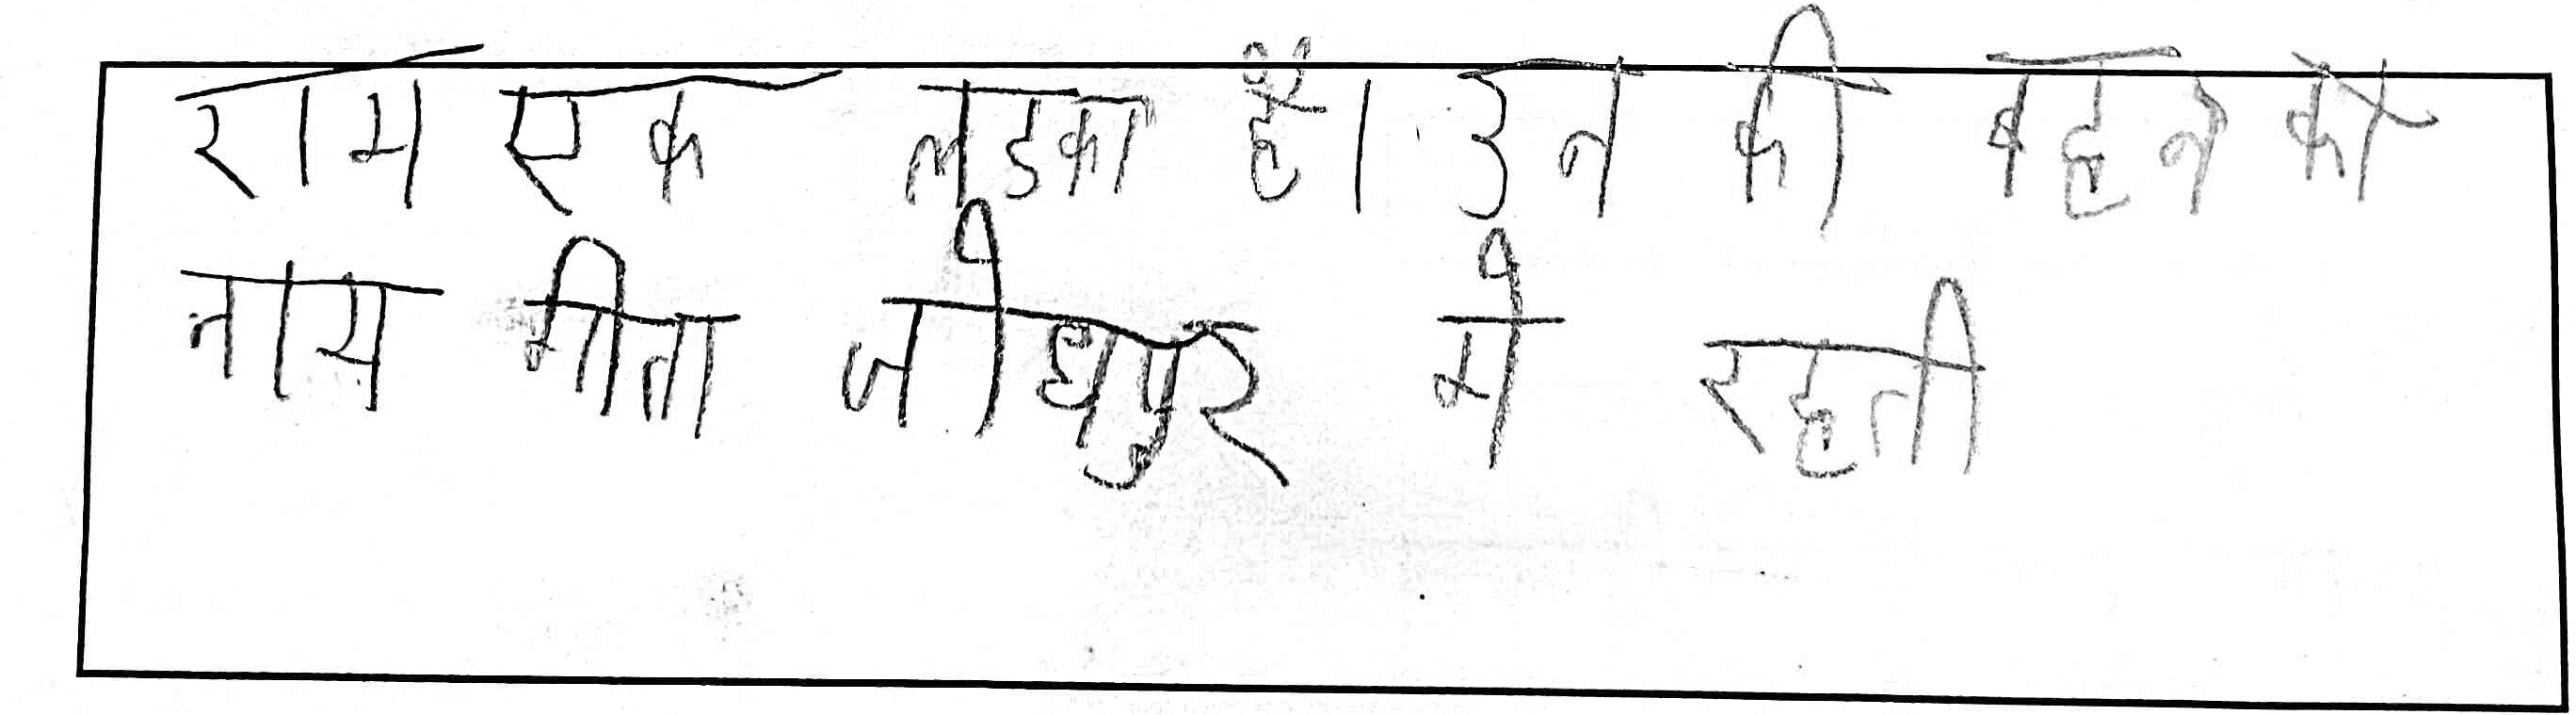 राम एक लडका है। उन की बहन का
नाम मीता जोधपुर मे रहती